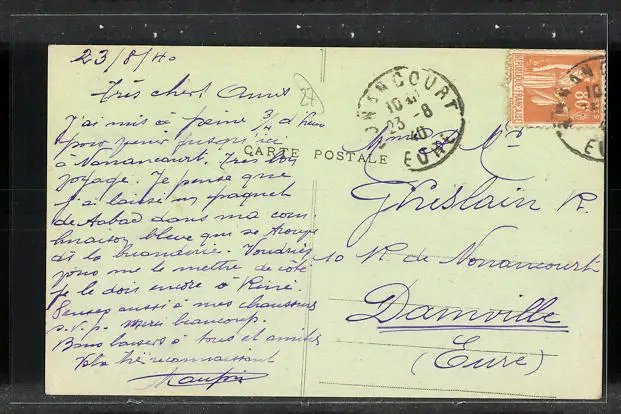 23/8/40
Très chers Amis
J'ai mis à peine 3/4 d'heure
pour venir jusqu'ici
à Nonancourt. Très bon
voyage. Je pense que
j'ai laissé un paquet
de dans ma com
binaison bleue qui se trouve
ds la buanderie. Voudriez
vous me le mettre de côté
je le dois encore à René.
Pensez aussi à mes chaussures
s.v.p. Merci beaucoup.
Bons baisers à tous et amitiés
Votre très reconnaissant
27
CARTE POSTALE
NONANCOURT
10
23-8
40
EURE
REPUBLIQUE FRANÇAISE
80
Ghislain R.
10 R. de Nonancourt
Damville
(Eure)